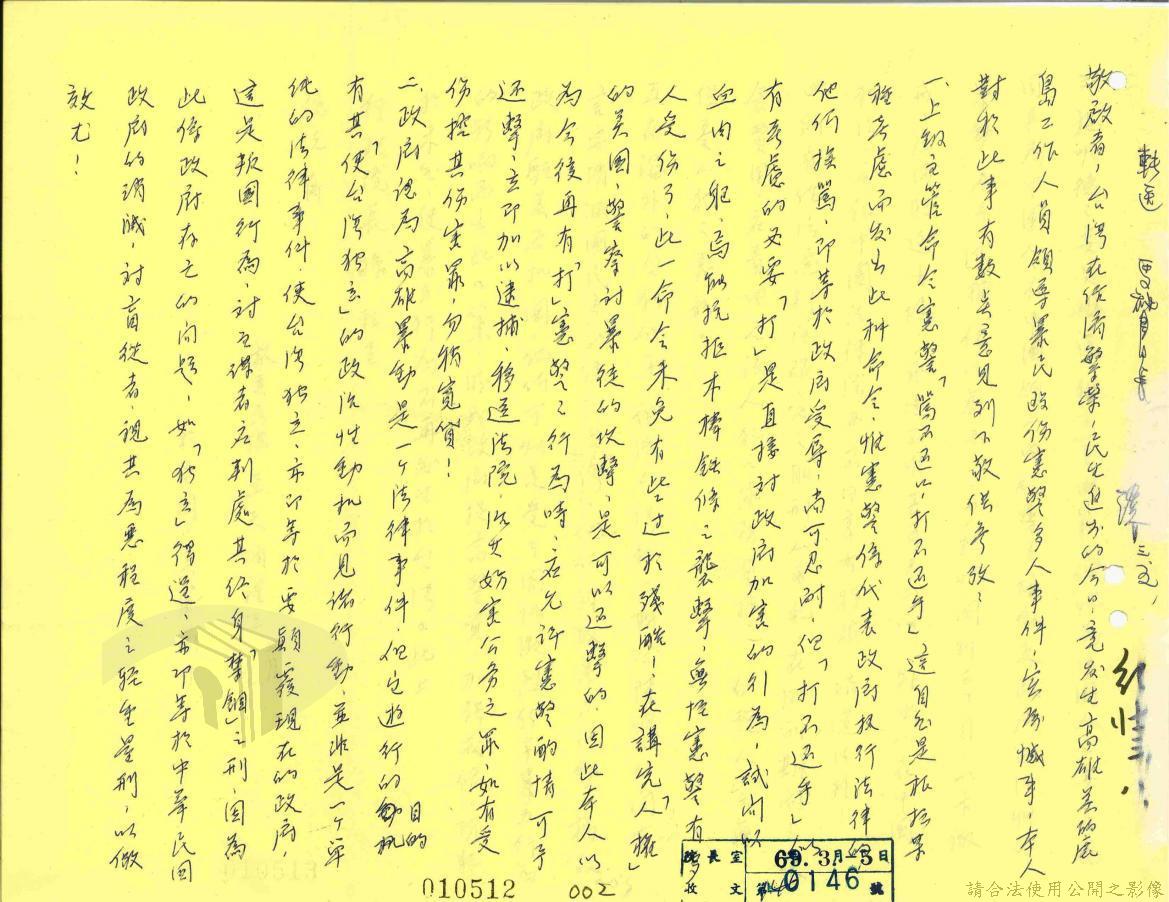 敬啟者,台湾在经濟繁榮,民生進步的今日,竟发生高雄美麗
島工作人員領導暴民殴伤憲警多人事件,实属憾事,本人
對於此事有數点意見列下敬供参攷:
一、上級主管命令憲警「罵不还口,打不还手」這自然是根据某
種考慮而发出此种命令,惟憲警係代表政府执行法律
他们挨罵,即等於政府受辱,尚可忍耐,但「打不还手」似
有考慮的必要「打」是直接对政府加害的行為,試问以
血肉之軀,焉能抗拒木棒鉄條之襲擊,無怪憲警有多
人受伤了,此一命令未免有些过於殘酷!在講究「人權」
的美国,警察討暴徒的攻擊,是可以还擊的,因此本人以
為今後再有「打」憲警之行為時,应允許憲警酌情可予
还擊,立即加以逮捕,移送法院,治其妨害公务之罪,如有受
伤控其伤害罪,勿稍寬貸!
二、政府認為高雄暴动是一个法律事件,但它遊行的目的
有其「使台湾独立」的政治性動机而見諸行动,並非是一个單
純的法律事件,使台湾独立,亦即等於要顛覆現在的政府,
這是叛國行為,討主謀者应判處其终身「禁錮」之刑,因為
此係政府存亡的问題,如「独立」得逞,亦即等於中華民国
政府的消滅,討盲從者,視其為惡程度之輕重量刑,以儆
效尤!
轉送
三.五
院長室
69.3月-5日
收文 第0146號
010512
002
010513
請合法使用公開之影像